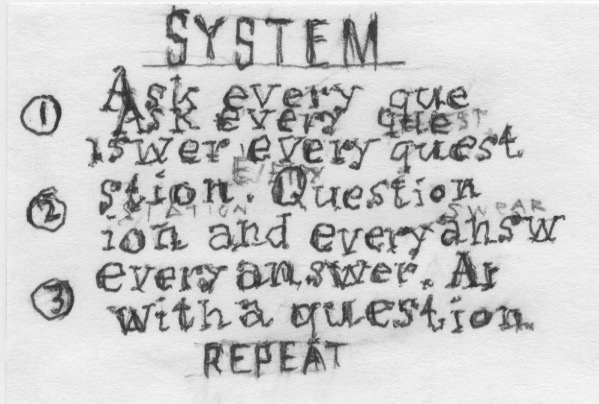 SYSTEM
① Ask every que
Ask every quest
nswer every quest
stion. Question
② STATION SWEAR
ion and every answ
every answer. An
③ with a question.
REPEAT